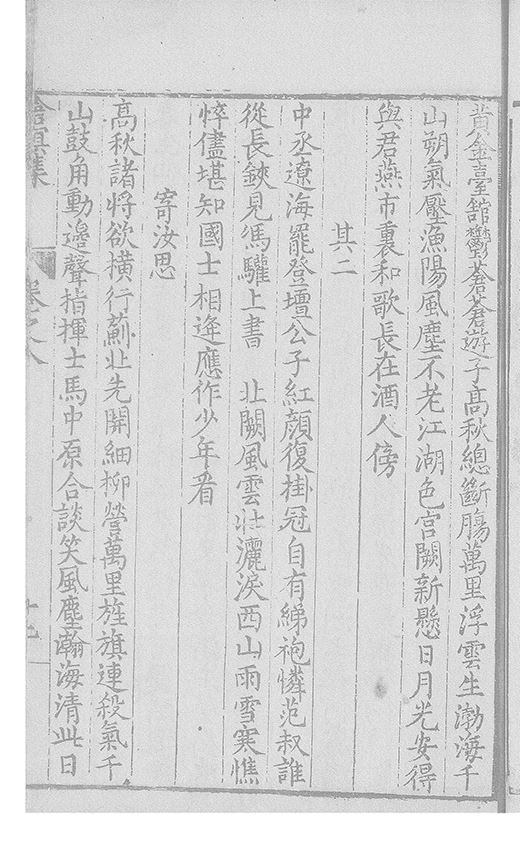 黃金臺舘鬱蒼蒼遊子高秋總斷腸萬里浮雲生渤海千
山朔氣壓漁陽風塵不老江湖色宮闕新懸日月光安得
與君燕市裏和歌長在酒人傍
其二
中丞遼海罷登壇公子紅顏復掛冠自有綈袍憐范叔誰
從長鋏見馮驩上書 北闕風雲壯灑淚西山雨雪寒憔
悴儘堪知國士相逢應作少年看
寄汝思
高秋諸將欲橫行薊北先開細柳營萬里旌旗連殺氣千
山鼓角動邊聲指揮士馬中原合談笑風塵瀚海清此日
滄溟集
卷之八